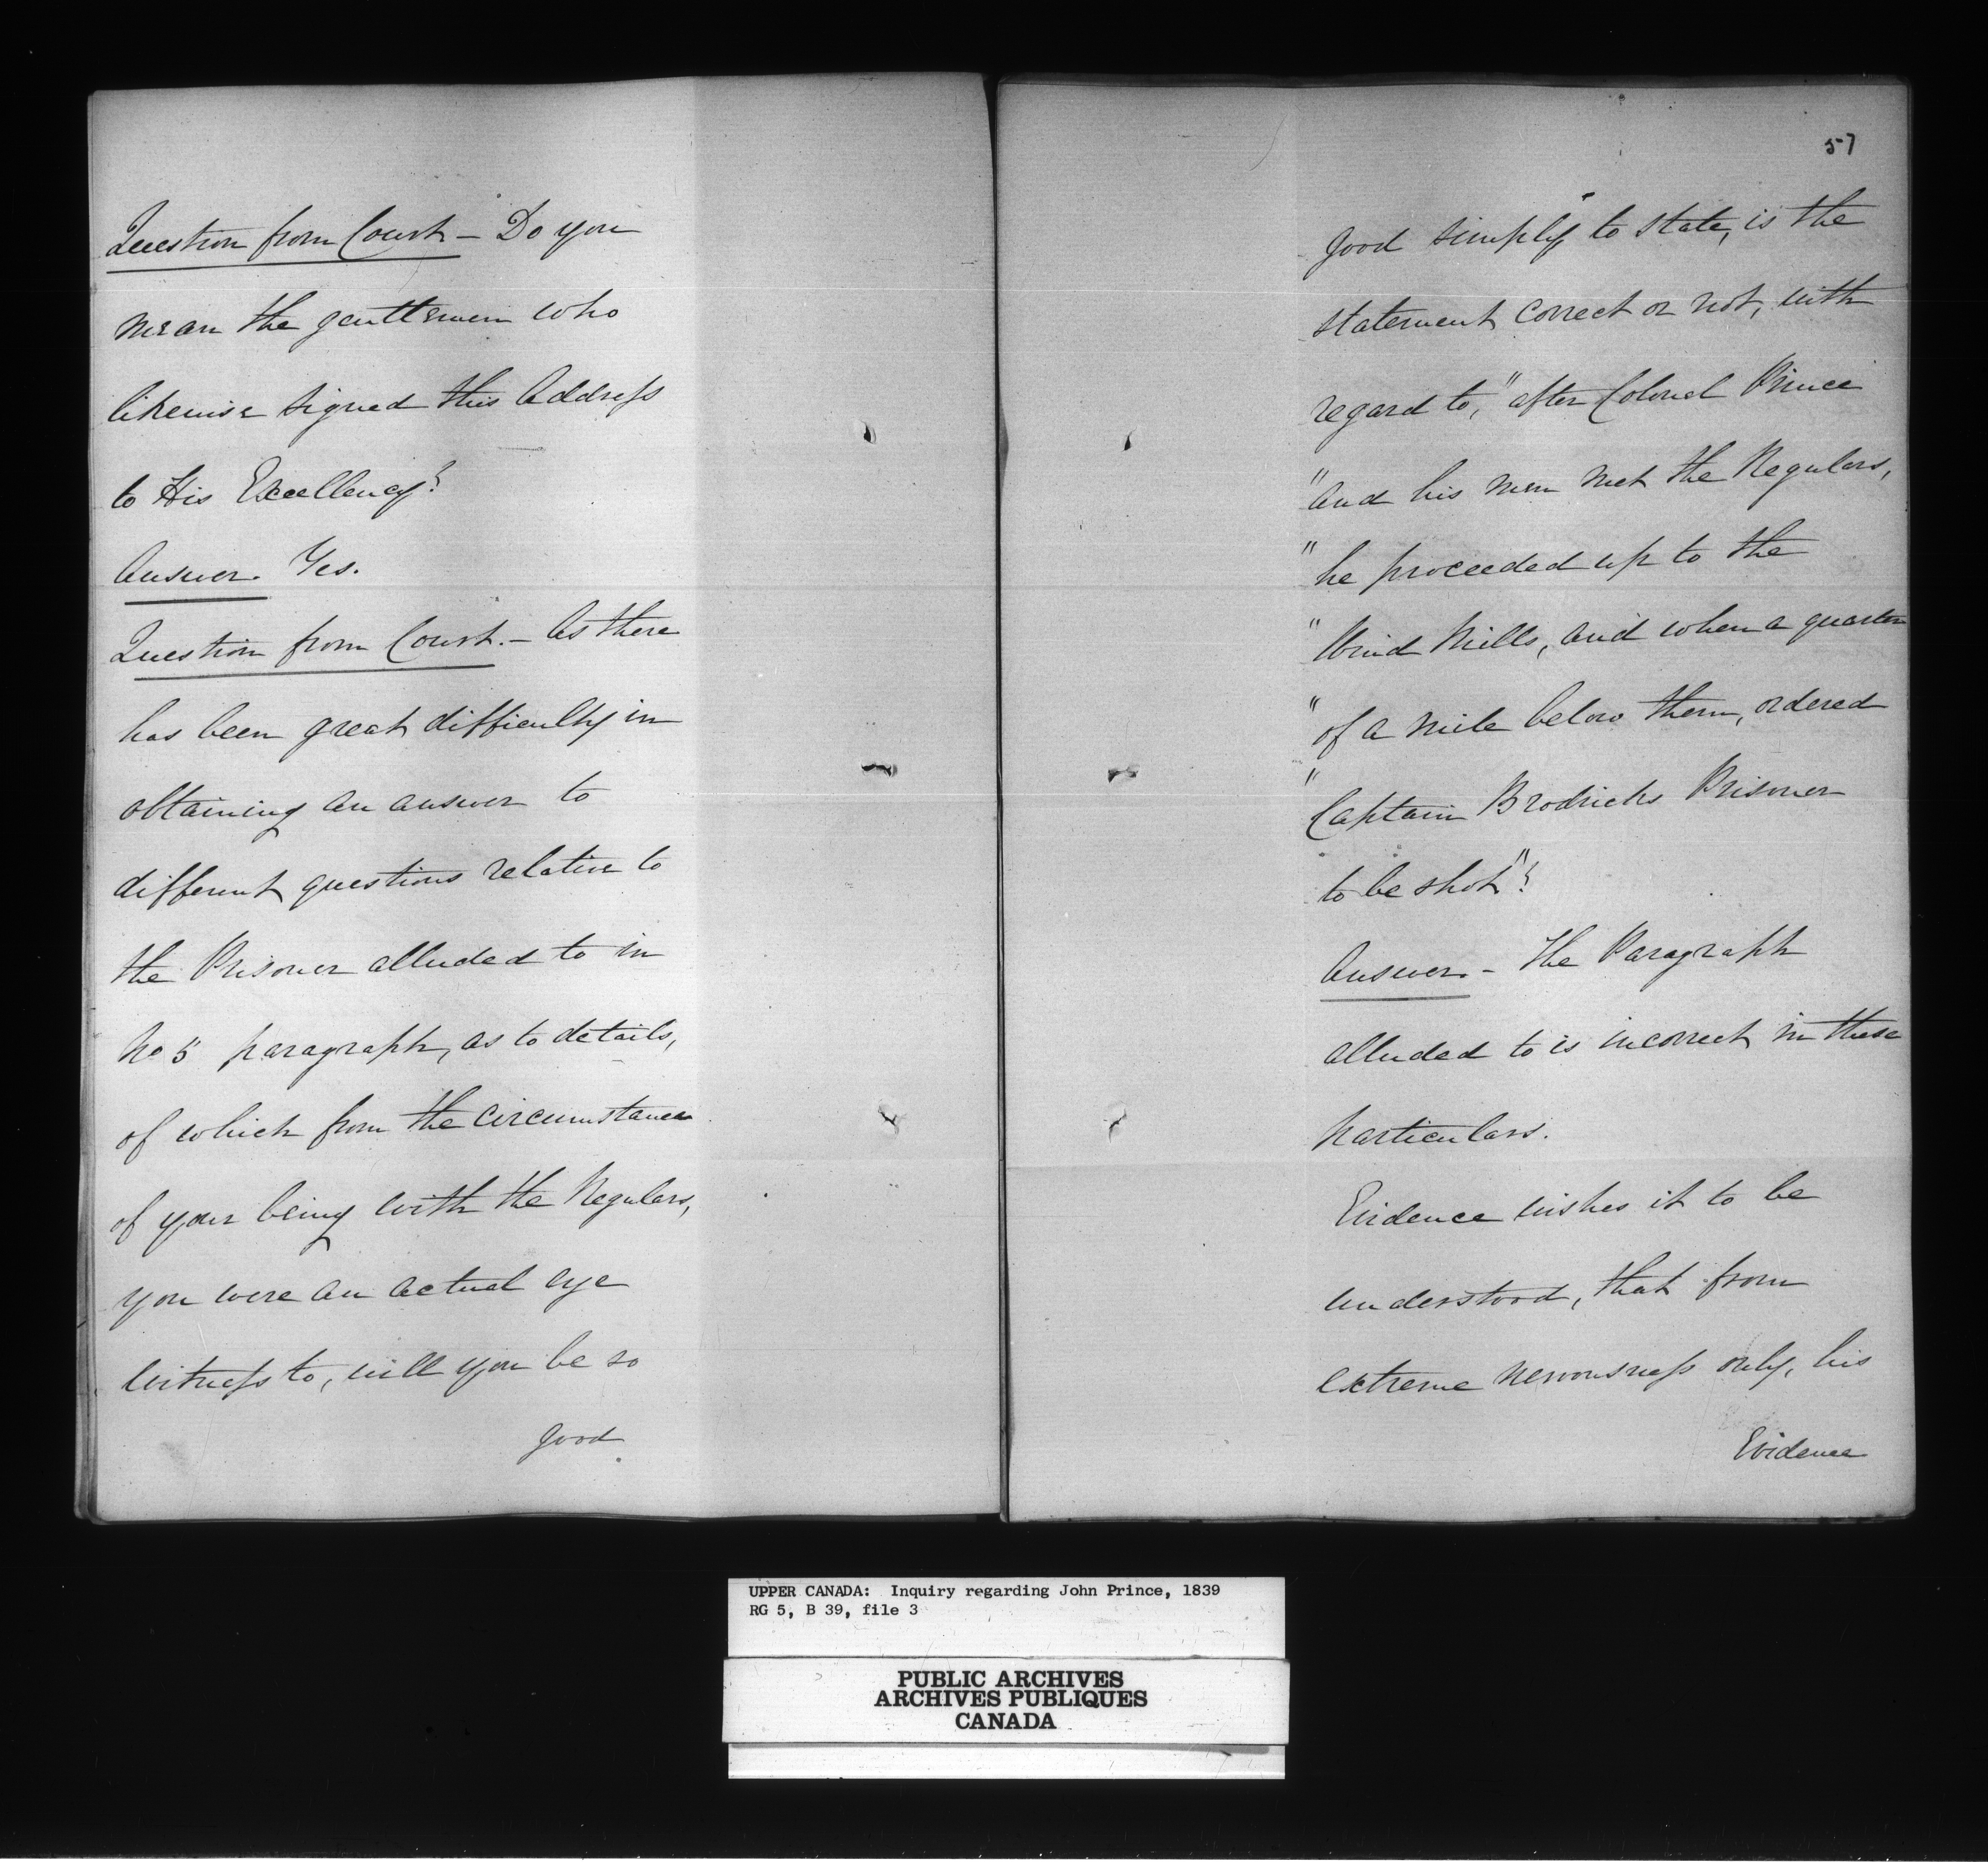 Question from Court – Do you
mean the gentlemen who
likewise signed this Address
to His Excellency?
Answer. Yes.
Question from Court. – As there
has been great difficulty in
obtaining an answer to
different questions relative to
the Prisoner alluded to in
No 5 paragraph, as to details,
of which from the circumstance
of your being with the Regulars,
you were an actual eye
witness to, will you be so
good
57
good simply to state, is the
statement correct or not, with
regard to, "after Colonel Prince
"and his men met the Regulars,
"he proceeded up to the
"Wind Mills, and when a quarter
"of a mile below them, ordered
"Captain Brodricks Prisoner
to be shot"?
Answer. – The Paragraph
alluded to is incorrect in these
particulars.
Evidence wishes it to be
understood, that from
extreme nervousness only, his
Evidence
UPPER CANADA: Inquiry regarding John Prince, 1839
RG 5, B 39, file 3
PUBLIC ARCHIVES
ARCHIVES PUBLIQUES
CANADA